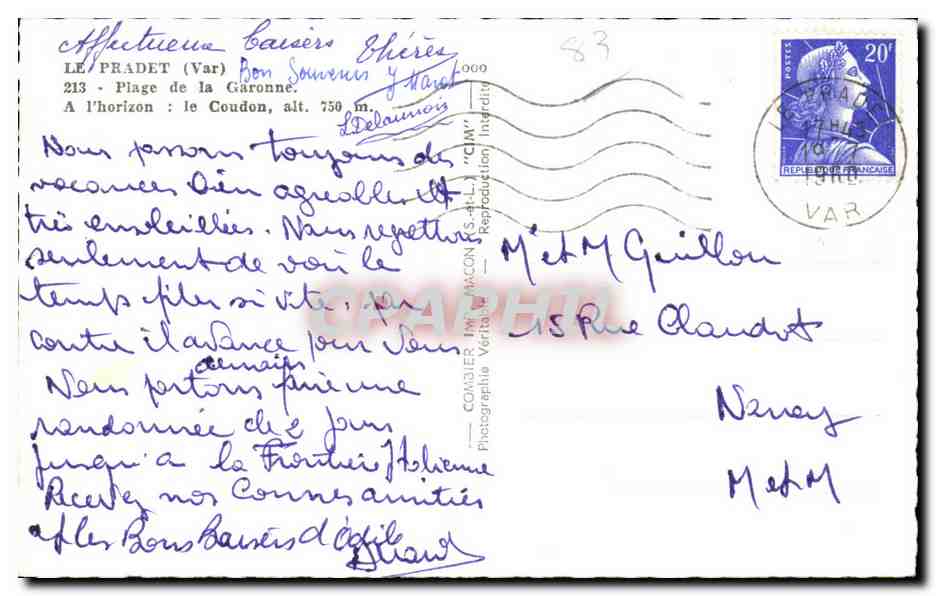 Affectueux baisers Thérèse
LE PRADET (Var) Bon Souvenir
213 - Plage de la Garonne.
A l'horizon : le Coudon, alt. 750 m.
L Delaunois
Nous passons toujours des
vacances bien agréables et
très ensoleillées. Nous regrettons
seulement de voir le
temps filer si vite, par
contre il avance pour vous
demain
Nous partons faire une
randonnée de 2 jours
jusqu'à la Frontière Italienne
Recevez nos bonnes amitiés
et les Bons Baisers d'Odile
000
COMBIER IMP. MACON (S.-et-L.) "CIM"
Photographie Véritable — Reproduction Interdite
83
POSTES
20F
REPUBLIQUE FRANÇAISE
LE PRADET
1960
VAR
Mr et M Guillou
15 Rue Claudot
Nancy
M et M
CPAPHIL